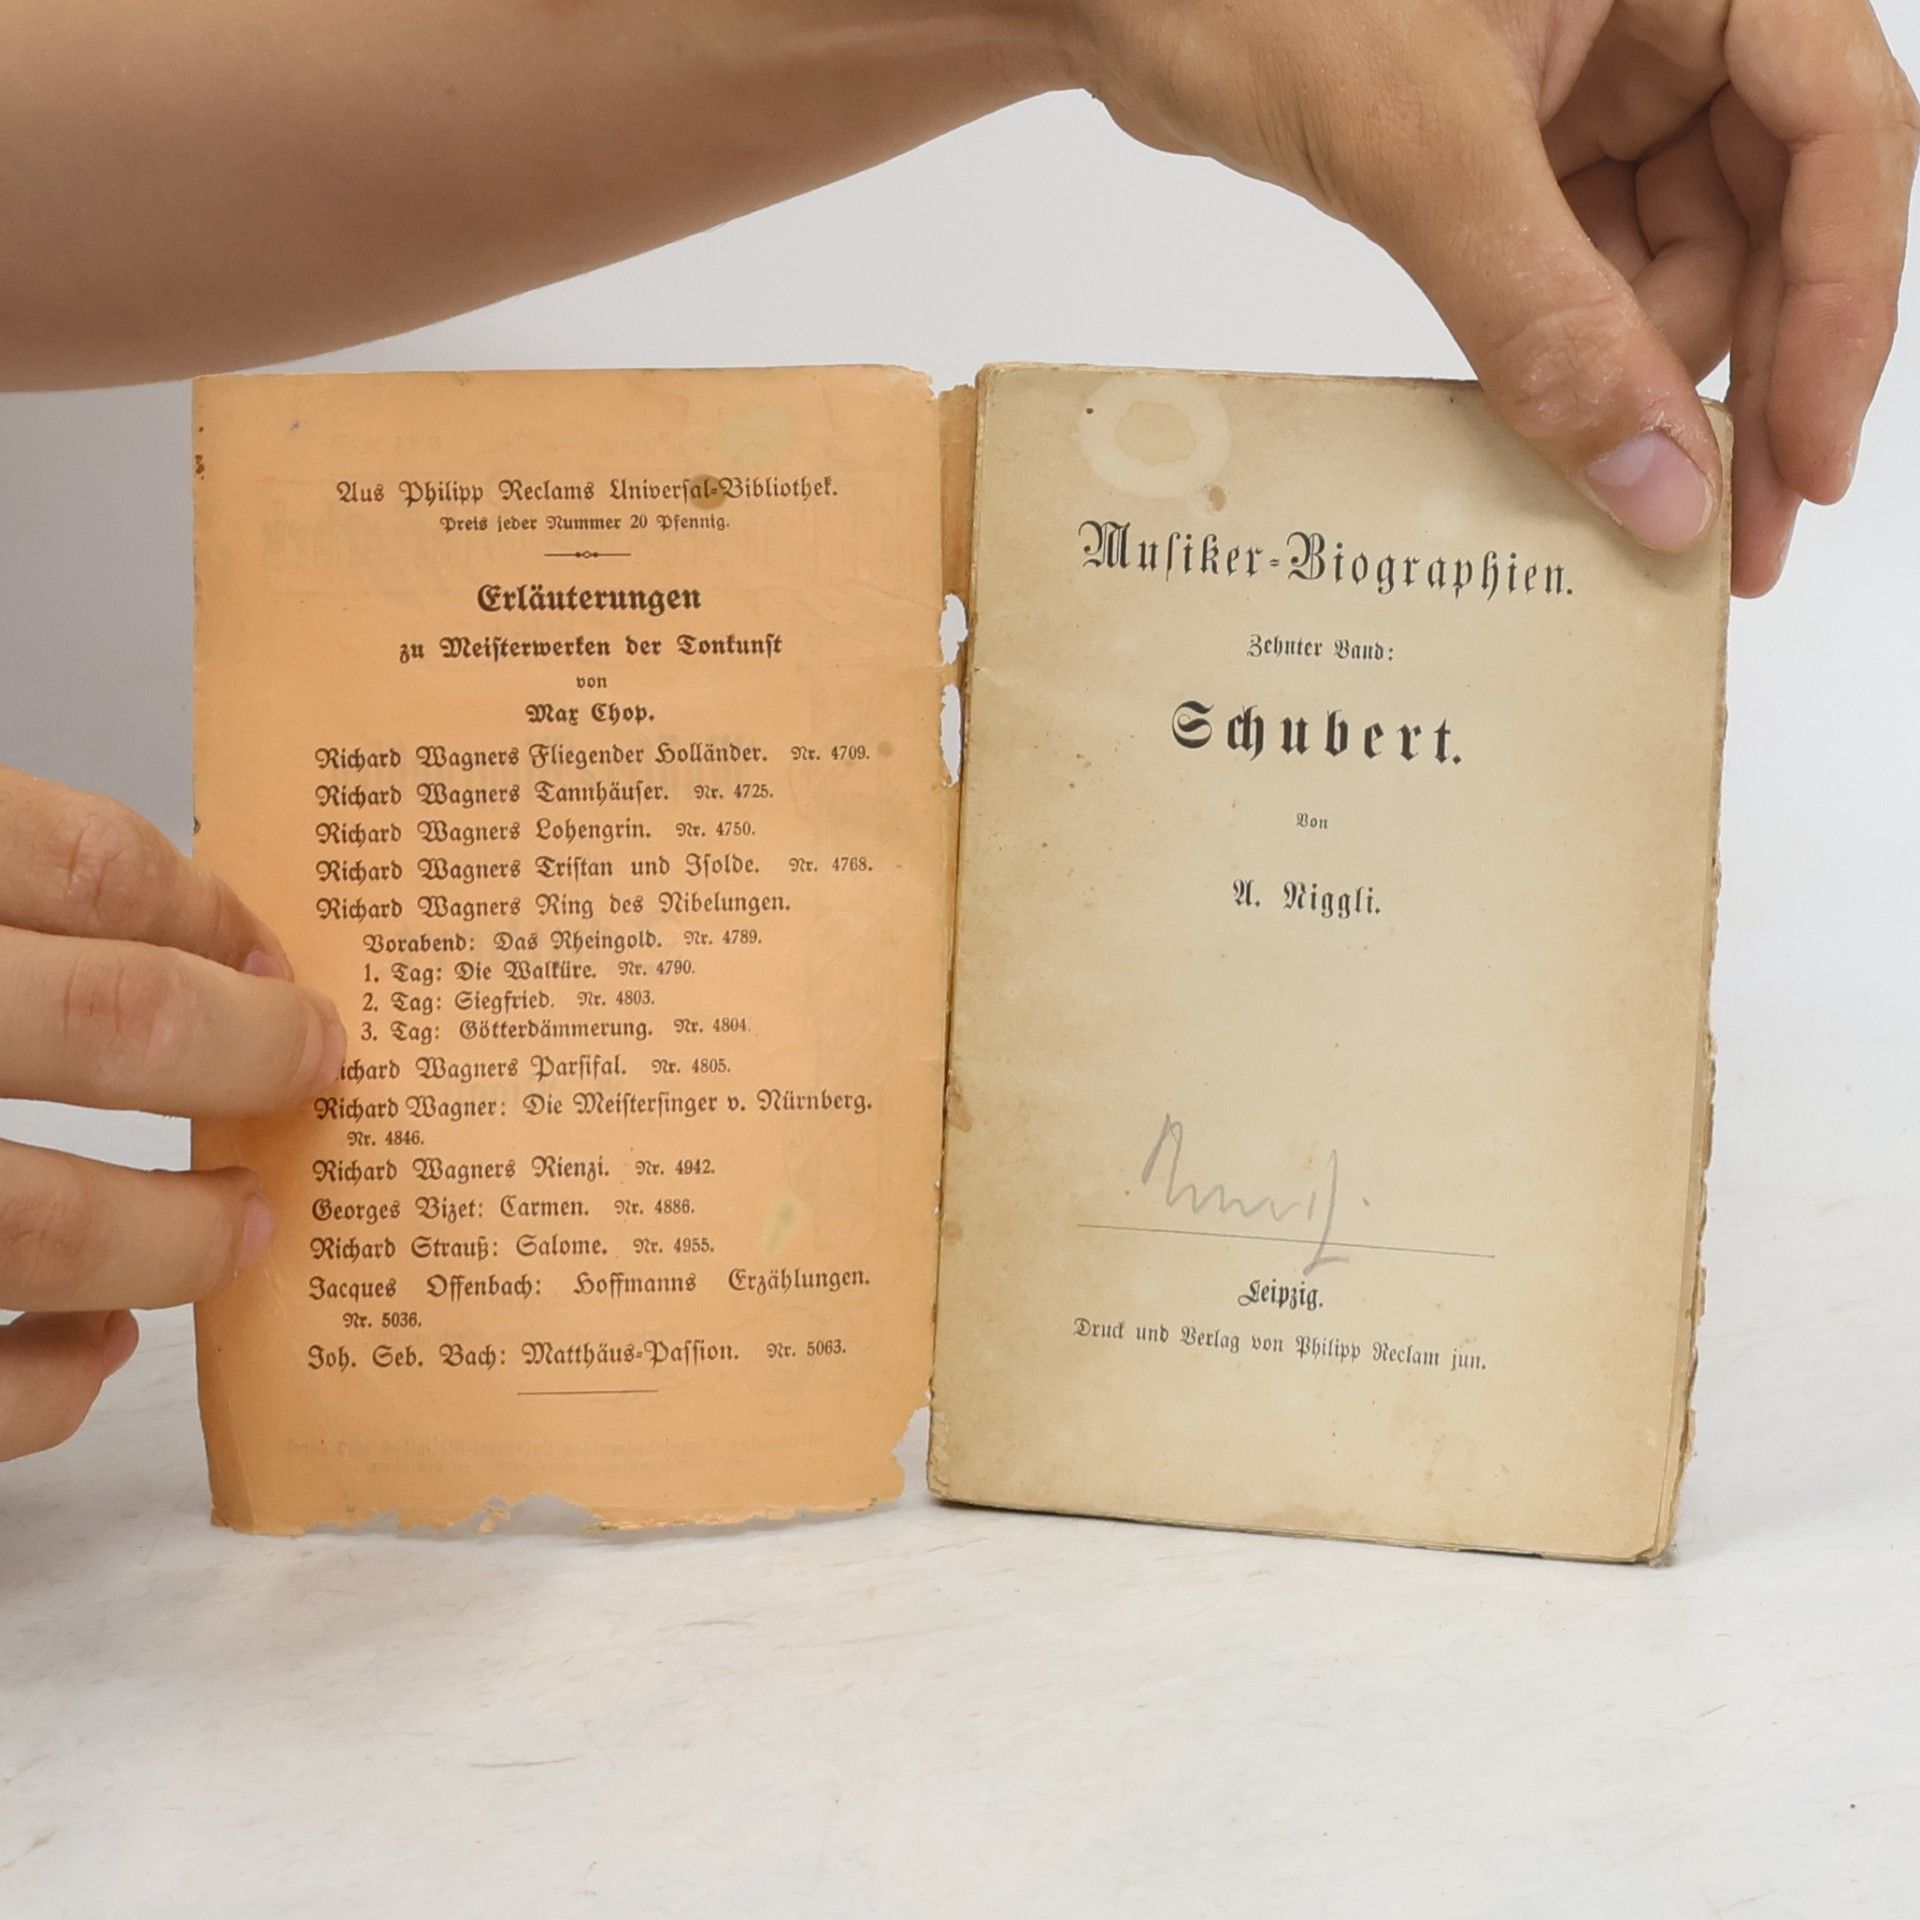 Aus Philipp Reclams Univerſal-Bibliothek.
Preis jeder Nummer 20 Pfennig.
Erläuterungen
zu Meiſterwerken der Tonkunſt
von
Max Chop.
Richard Wagners Fliegender Holländer. Nr. 4709.
Richard Wagners Tannhäuſer. Nr. 4725.
Richard Wagners Lohengrin. Nr. 4750.
Richard Wagners Triſtan und Iſolde. Nr. 4768.
Richard Wagners Ring des Nibelungen.
Vorabend: Das Rheingold. Nr. 4789.
1. Tag: Die Walküre. Nr. 4790.
2. Tag: Siegfried. Nr. 4803.
3. Tag: Götterdämmerung. Nr. 4804.
ichard Wagners Parſifal. Nr. 4805.
Richard Wagner: Die Meiſterſinger v. Nürnberg.
Nr. 4846.
Richard Wagners Rienzi. Nr. 4942.
Georges Bizet: Carmen. Nr. 4886.
Richard Strauß: Salome. Nr. 4955.
Jacques Offenbach: Hoffmanns Erzählungen.
Nr. 5036.
Joh. Seb. Bach: Matthäus-Paſſion. Nr. 5063.
Muſiker-Biographien.
Zehnter Band:
Schubert.
Von
A. Niggli.
Leipzig.
Druck und Verlag von Philipp Reclam jun.